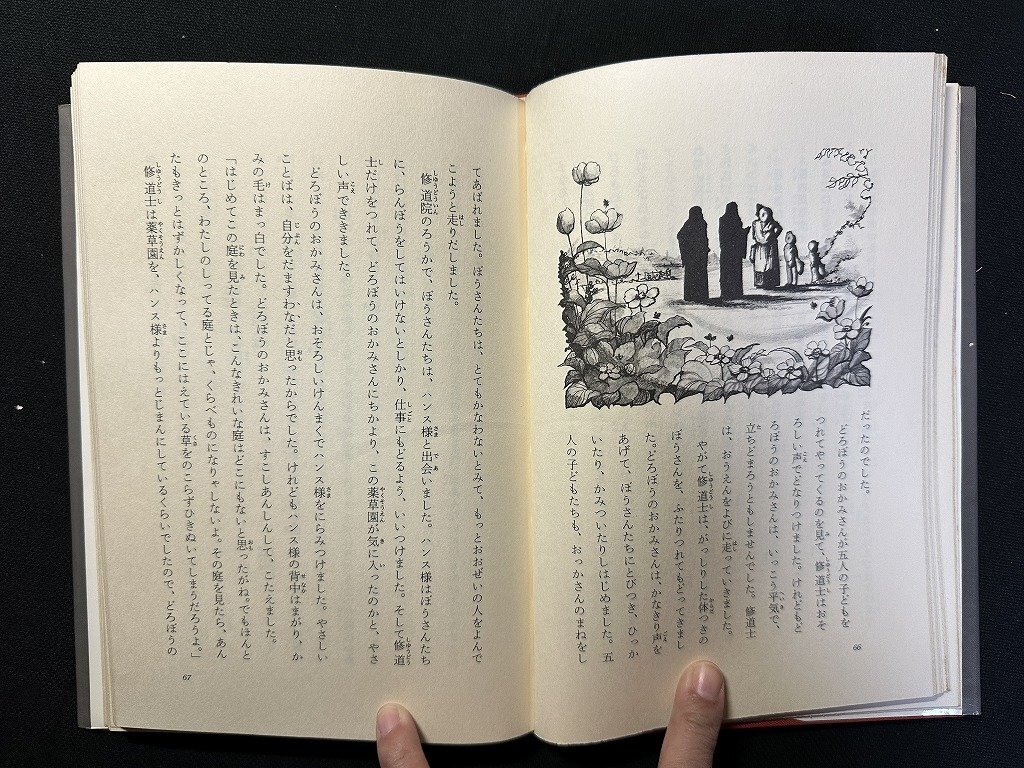 だったのでした。
どろぼうのおかみさんが五人の子どもを
つれてやってくるのを見て、修道士はおそ
ろしい声でどなりつけました。けれどもど
ろぼうのおかみさんは、いっこう平気で、
立ちどまろうともしませんでした。修道士
は、おうえんをよびに走っていきました。
やがて修道士は、がっしりした体つきの
ぼうさんを、ふたりつれてもどってきまし
た。どろぼうのおかみさんは、かなきり声を
あげて、ぼうさんたちにとびつき、ひっか
いたり、かみついたりしはじめました。五
人の子どもたちも、おっかさんのまねをし
66
てあばれました。ぼうさんたちは、とてもかなわないとみて、もっとおおぜいの人をよんで
こようと走りだしました。
修道院のろうかで、ぼうさんたちは、ハンス様と出会いました。ハンス様はぼうさんたち
に、らんぼうをしてはいけないとしかり、仕事にもどるよう、いいつけました。そして修道
士だけをつれて、どろぼうのおかみさんにちかより、この薬草園が気に入ったのかと、やさ
しい声でききました。
どろぼうのおかみさんは、おそろしいけんまくでハンス様をにらみつけました。やさしい
ことばは、自分をだますわなだと思ったからでした。けれどもハンス様の背中はまがり、か
みの毛はまっ白でした。どろぼうのおかみさんは、すこしあんしんして、こたえました。
「はじめてこの庭を見たときは、こんなきれいな庭はどこにもないと思ったがね。でもほんと
のところ、わたしのしってる庭とじゃ、くらべものになりゃしないよ。その庭を見たら、あん
たもきっとはずかしくなって、ここにはえている草をのこらずひきぬいてしまうだろうよ。」
修道士は薬草園を、ハンス様よりもっとじまんにしているくらいでしたので、どろぼうの
67